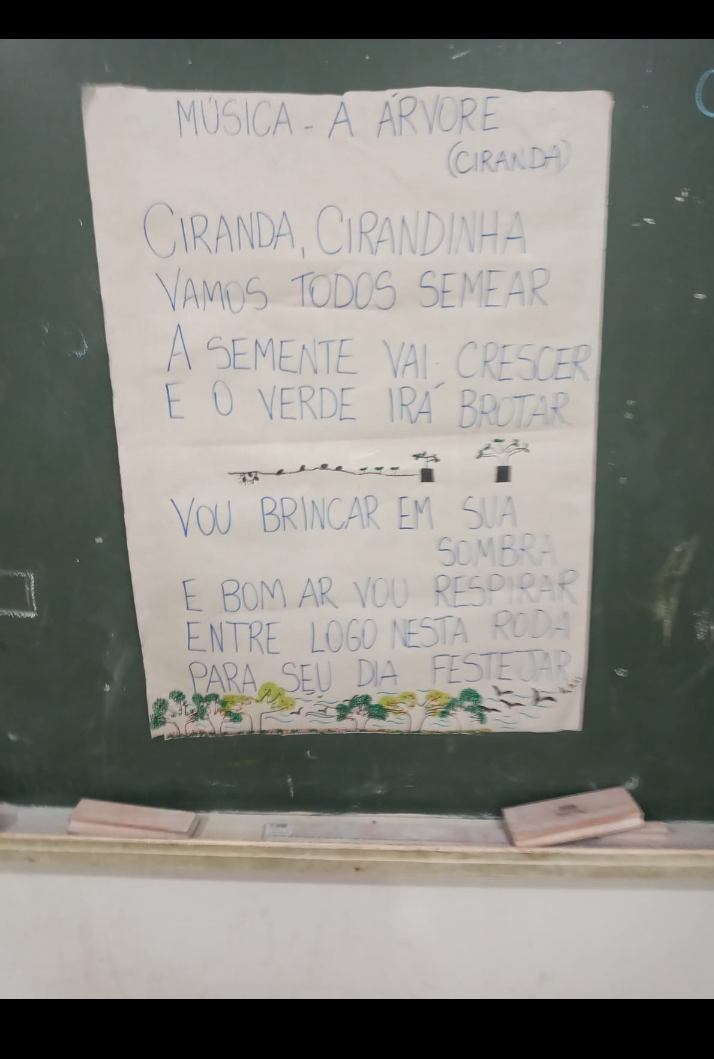 MÚSICA - A ÁRVORE
(CIRANDA)
CIRANDA, CIRANDINHA
VAMOS TODOS SEMEAR
A SEMENTE VAI CRESCER
E O VERDE IRÁ BROTAR
VOU BRINCAR EM SUA
SOMBRA
E BOM AR VOU RESPIRAR
ENTRE LOGO NESTA RODA
PARA SEU DIA FESTEJAR